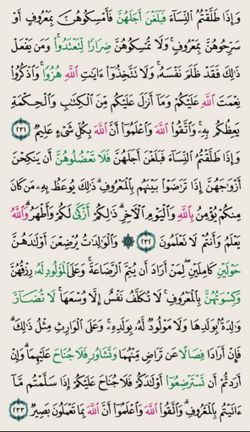 وَإِذَا طَلَّقْتُمُ النِّسَاءَ فَبَلَغْنَ أَجَلَهُنَّ فَأَمْسِكُوهُنَّ بِمَعْرُوفٍ أَوْ
سَرِّحُوهُنَّ بِمَعْرُوفٍ وَلَا تُمْسِكُوهُنَّ ضِرَارًا لِتَعْتَدُوا وَمَن يَفْعَلْ
ذَٰلِكَ فَقَدْ ظَلَمَ نَفْسَهُ وَلَا تَتَّخِذُوا آيَاتِ اللَّهِ هُزُوًا وَاذْكُرُوا
نِعْمَتَ اللَّهِ عَلَيْكُمْ وَمَا أَنزَلَ عَلَيْكُم مِّنَ الْكِتَابِ وَالْحِكْمَةِ
يَعِظُكُم بِهِ وَاتَّقُوا اللَّهَ وَاعْلَمُوا أَنَّ اللَّهَ بِكُلِّ شَيْءٍ عَلِيمٌ ٢٣١
وَإِذَا طَلَّقْتُمُ النِّسَاءَ فَبَلَغْنَ أَجَلَهُنَّ فَلَا تَعْضُلُوهُنَّ أَن يَنكِحْنَ
أَزْوَاجَهُنَّ إِذَا تَرَاضَوْا بَيْنَهُم بِالْمَعْرُوفِ ذَٰلِكَ يُوعَظُ بِهِ مَن كَانَ
مِنكُمْ يُؤْمِنُ بِاللَّهِ وَالْيَوْمِ الْآخِرِ ذَٰلِكُمْ أَزْكَىٰ لَكُمْ وَأَطْهَرُ وَاللَّهُ
يَعْلَمُ وَأَنتُمْ لَا تَعْلَمُونَ ٢٣٢ وَالْوَالِدَاتُ يُرْضِعْنَ أَوْلَادَهُنَّ
حَوْلَيْنِ كَامِلَيْنِ لِمَنْ أَرَادَ أَن يُتِمَّ الرَّضَاعَةَ وَعَلَى الْمَوْلُودِ لَهُ رِزْقُهُنَّ
وَكِسْوَتُهُنَّ بِالْمَعْرُوفِ لَا تُكَلَّفُ نَفْسٌ إِلَّا وُسْعَهَا لَا تُضَارَّ
وَالِدَةٌ بِوَلَدِهَا وَلَا مَوْلُودٌ لَّهُ بِوَلَدِهِ وَعَلَى الْوَارِثِ مِثْلُ ذَٰلِكَ
فَإِنْ أَرَادَا فِصَالًا عَن تَرَاضٍ مِّنْهُمَا وَتَشَاوُرٍ فَلَا جُنَاحَ عَلَيْهِمَا وَإِنْ
أَرَدتُّمْ أَن تَسْتَرْضِعُوا أَوْلَادَكُمْ فَلَا جُنَاحَ عَلَيْكُمْ إِذَا سَلَّمْتُم مَّا
آتَيْتُم بِالْمَعْرُوفِ وَاتَّقُوا اللَّهَ وَاعْلَمُوا أَنَّ اللَّهَ بِمَا تَعْمَلُونَ بَصِيرٌ ٢٣٣